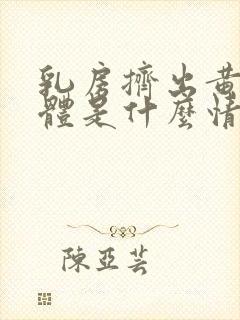 乳房擠出黃
體是什麼情
陳亞芸